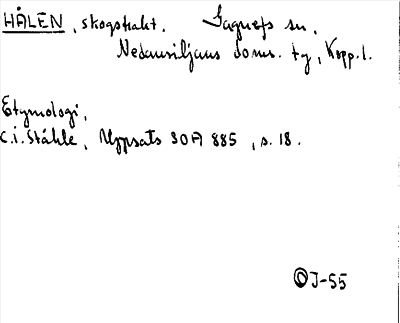 HÅLEN, skogstrakt. Gagnefs sn,
Nedansiljans doms. tg, Kopp. l.
Etymologi,
C.i. Ståhle, Uppsats SOA 885, s. 18.
J-55